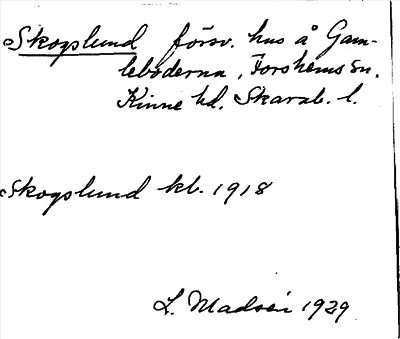 Skogslund försv. hus å Gam-
leboderna, Forshems sn.
Kinne hd. Skarab. l.
Skogslund kb. 1918
L. Madsén 1929